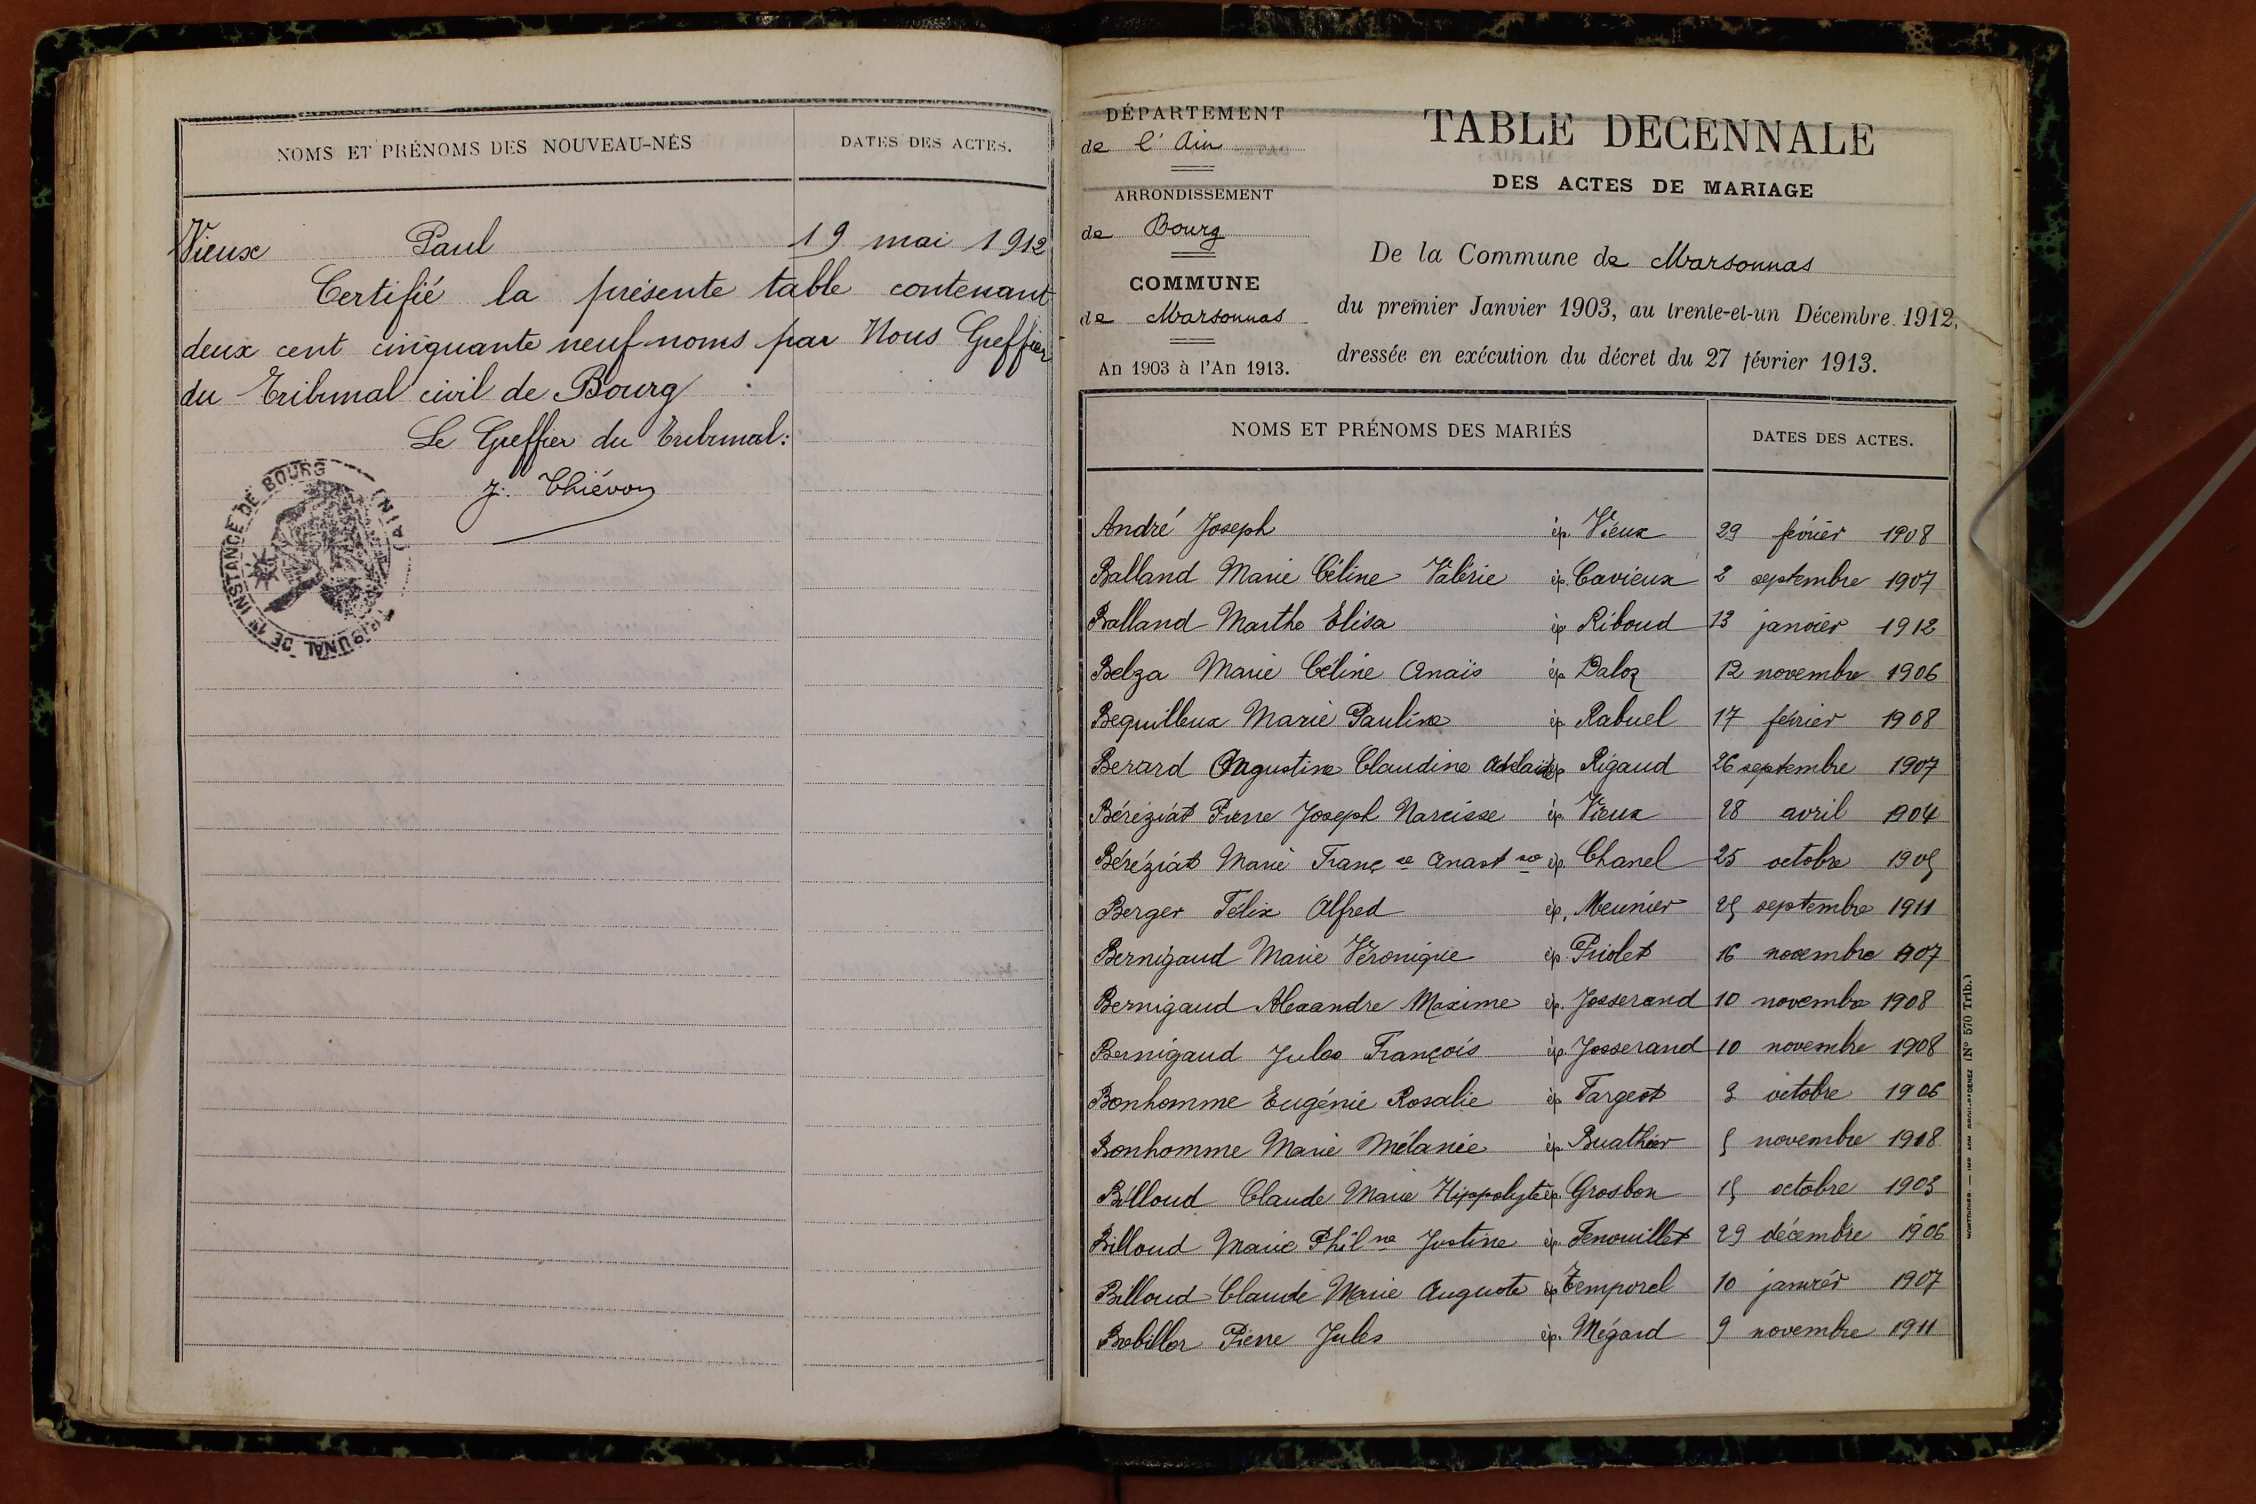 NOMS ET PRÉNOMS DES NOUVEAU-NÉS DATES DES ACTES.
Vieux Paul 19 mai 1912
Certifié la présente table contenant
deux cent cinquante neuf noms par Nous Greffier
du Tribunal civil de Bourg
Le Greffier du Tribunal:
J. Thiévon
TRIBUNAL DE 1re INSTANCE DE BOURG (AIN)
DÉPARTEMENT
de l'Ain
ARRONDISSEMENT
de Bourg
COMMUNE
de Marsonnas
An 1903 à l'An 1913.
TABLE DECENNALE
DES ACTES DE MARIAGE
De la Commune de Marsonnas
du premier Janvier 1903, au trente-et-un Décembre 1912,
dressée en exécution du décret du 27 février 1913.
NOMS ET PRÉNOMS DES MARIÉS DATES DES ACTES.
André Joseph ép. Vieux 29 février 1908
Balland Marie Céline Valérie ép. Cavieux 2 septembre 1907
Balland Marthe Elisa ép Riboud 13 janvier 1912
Belza Marie Céline Anaïs ép Daloz 12 novembre 1906
Bequilleux Marie Pauline ép Rabuel 17 février 1908
Berard Augustine Claudine Adelaide ép Rigaud 26 septembre 1907
Béréziat Pierre Joseph Narcisse ép. Vieux 28 avril 1904
Béréziat Marie Franç se Anast se ép. Chanel 25 octobre 1905
Berger Félix Alfred ép. Meunier 25 septembre 1911
Bernigaud Marie Véronique ép. Priolet 16 novembre 1907
Bernigaud Alexandre Maxime ép. Josserand 10 novembre 1908
Bernigaud Jules François ép. Josserand 10 novembre 1908
Bonhomme Eugénie Rosalie ép Targeot 3 octobre 1906
Bonhomme Marie Mélanie ép. Buathier 5 novembre 1908
Billoud Claude Marie Hippolyte ép. Grosbon 15 octobre 1903
Billoud Marie Phil ne Justine ép. Fenouillet 29 décembre 1906
Billoud Claude Marie Auguste ép Temporel 10 janvier 1907
Bobillon Pierre Jules ép. Mégard 9 novembre 1911
(N° 570 Trib.)